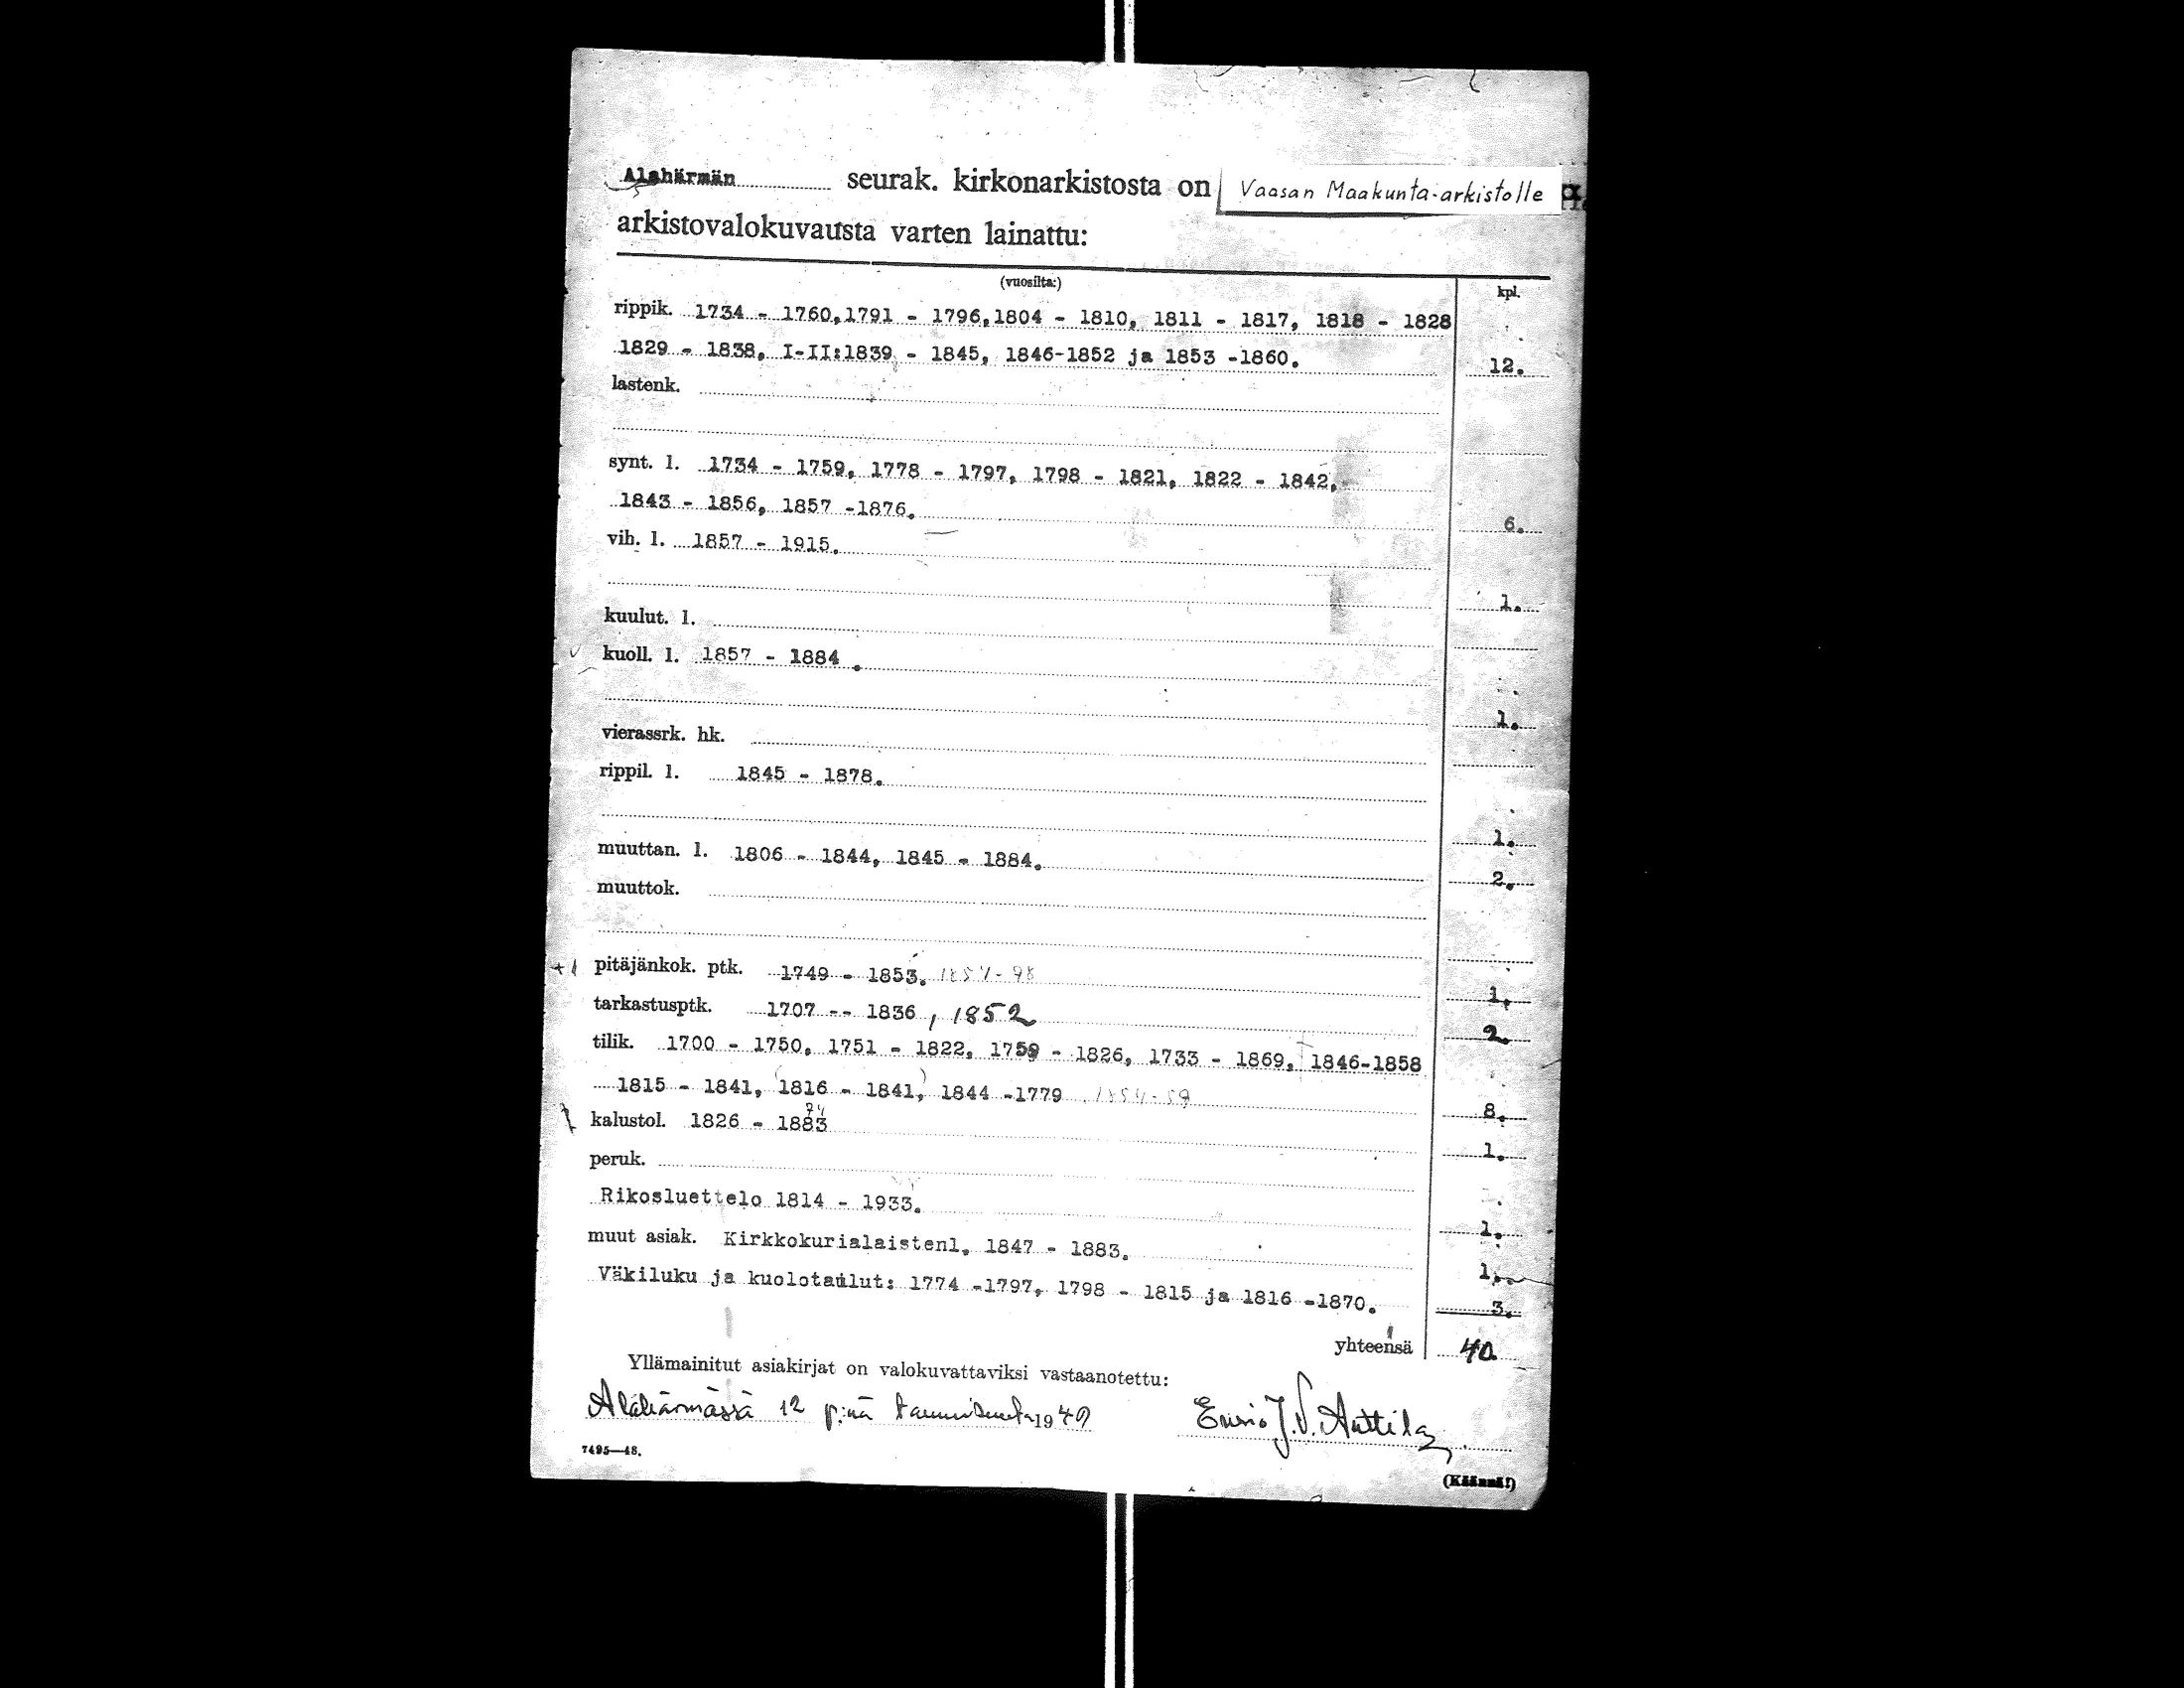 Alahärmän seurak. kirkonarkistosta on Vaasan Maakunta-arkistolle
arkistovalokuvausta varten lainattu:
(vuosilta:) kpl.
rippik. 1734 - 1760, 1791 - 1796, 1804 - 1810, 1811 - 1817, 1818 - 1828
1829 - 1838, I-II:1839 - 1845, 1846-1852 ja 1853 -1860. 12.
lastenk.
synt. l. 1734 - 1759, 1778 - 1797, 1798 - 1821, 1822 - 1842,
1843 - 1856, 1857 -1876. 6.
vih. l. 1857 - 1915.
1.
kuulut. l.
kuoll. l. 1857 - 1884.
1.
vierassrk. hk.
rippil. l. 1845 - 1878.
1.
muuttan. l. 1806 - 1844, 1845 - 1884. 2.
muuttok.
+1 pitäjänkok. ptk. 1749 - 1853. 1854-98 1.
tarkastusptk. 1707 -- 1836, 1852 2.
tilik. 1700 - 1750, 1751 - 1822, 1759 - 1826, 1733 - 1869, 1846-1858
1815 - 1841, (1816 - 1841,) 1844 -1779 1854-59 8.
74
kalustol. 1826 - 1883 1.
peruk.
Rikosluettelo 1814 - 1933. 1.
muut asiak. Kirkkokurialaistenl. 1847 - 1883. 1.
Väkiluku ja kuolotaulut: 1774 -1797, 1798 - 1815 ja 1816 -1870. 3.
yhteensä 40.
Yllämainitut asiakirjat on valokuvattaviksi vastaanotettu:
Alahärmässä 12 p:nä tammikuuta 1949 J.V. Anttila
7495—48.
(Käännä!)